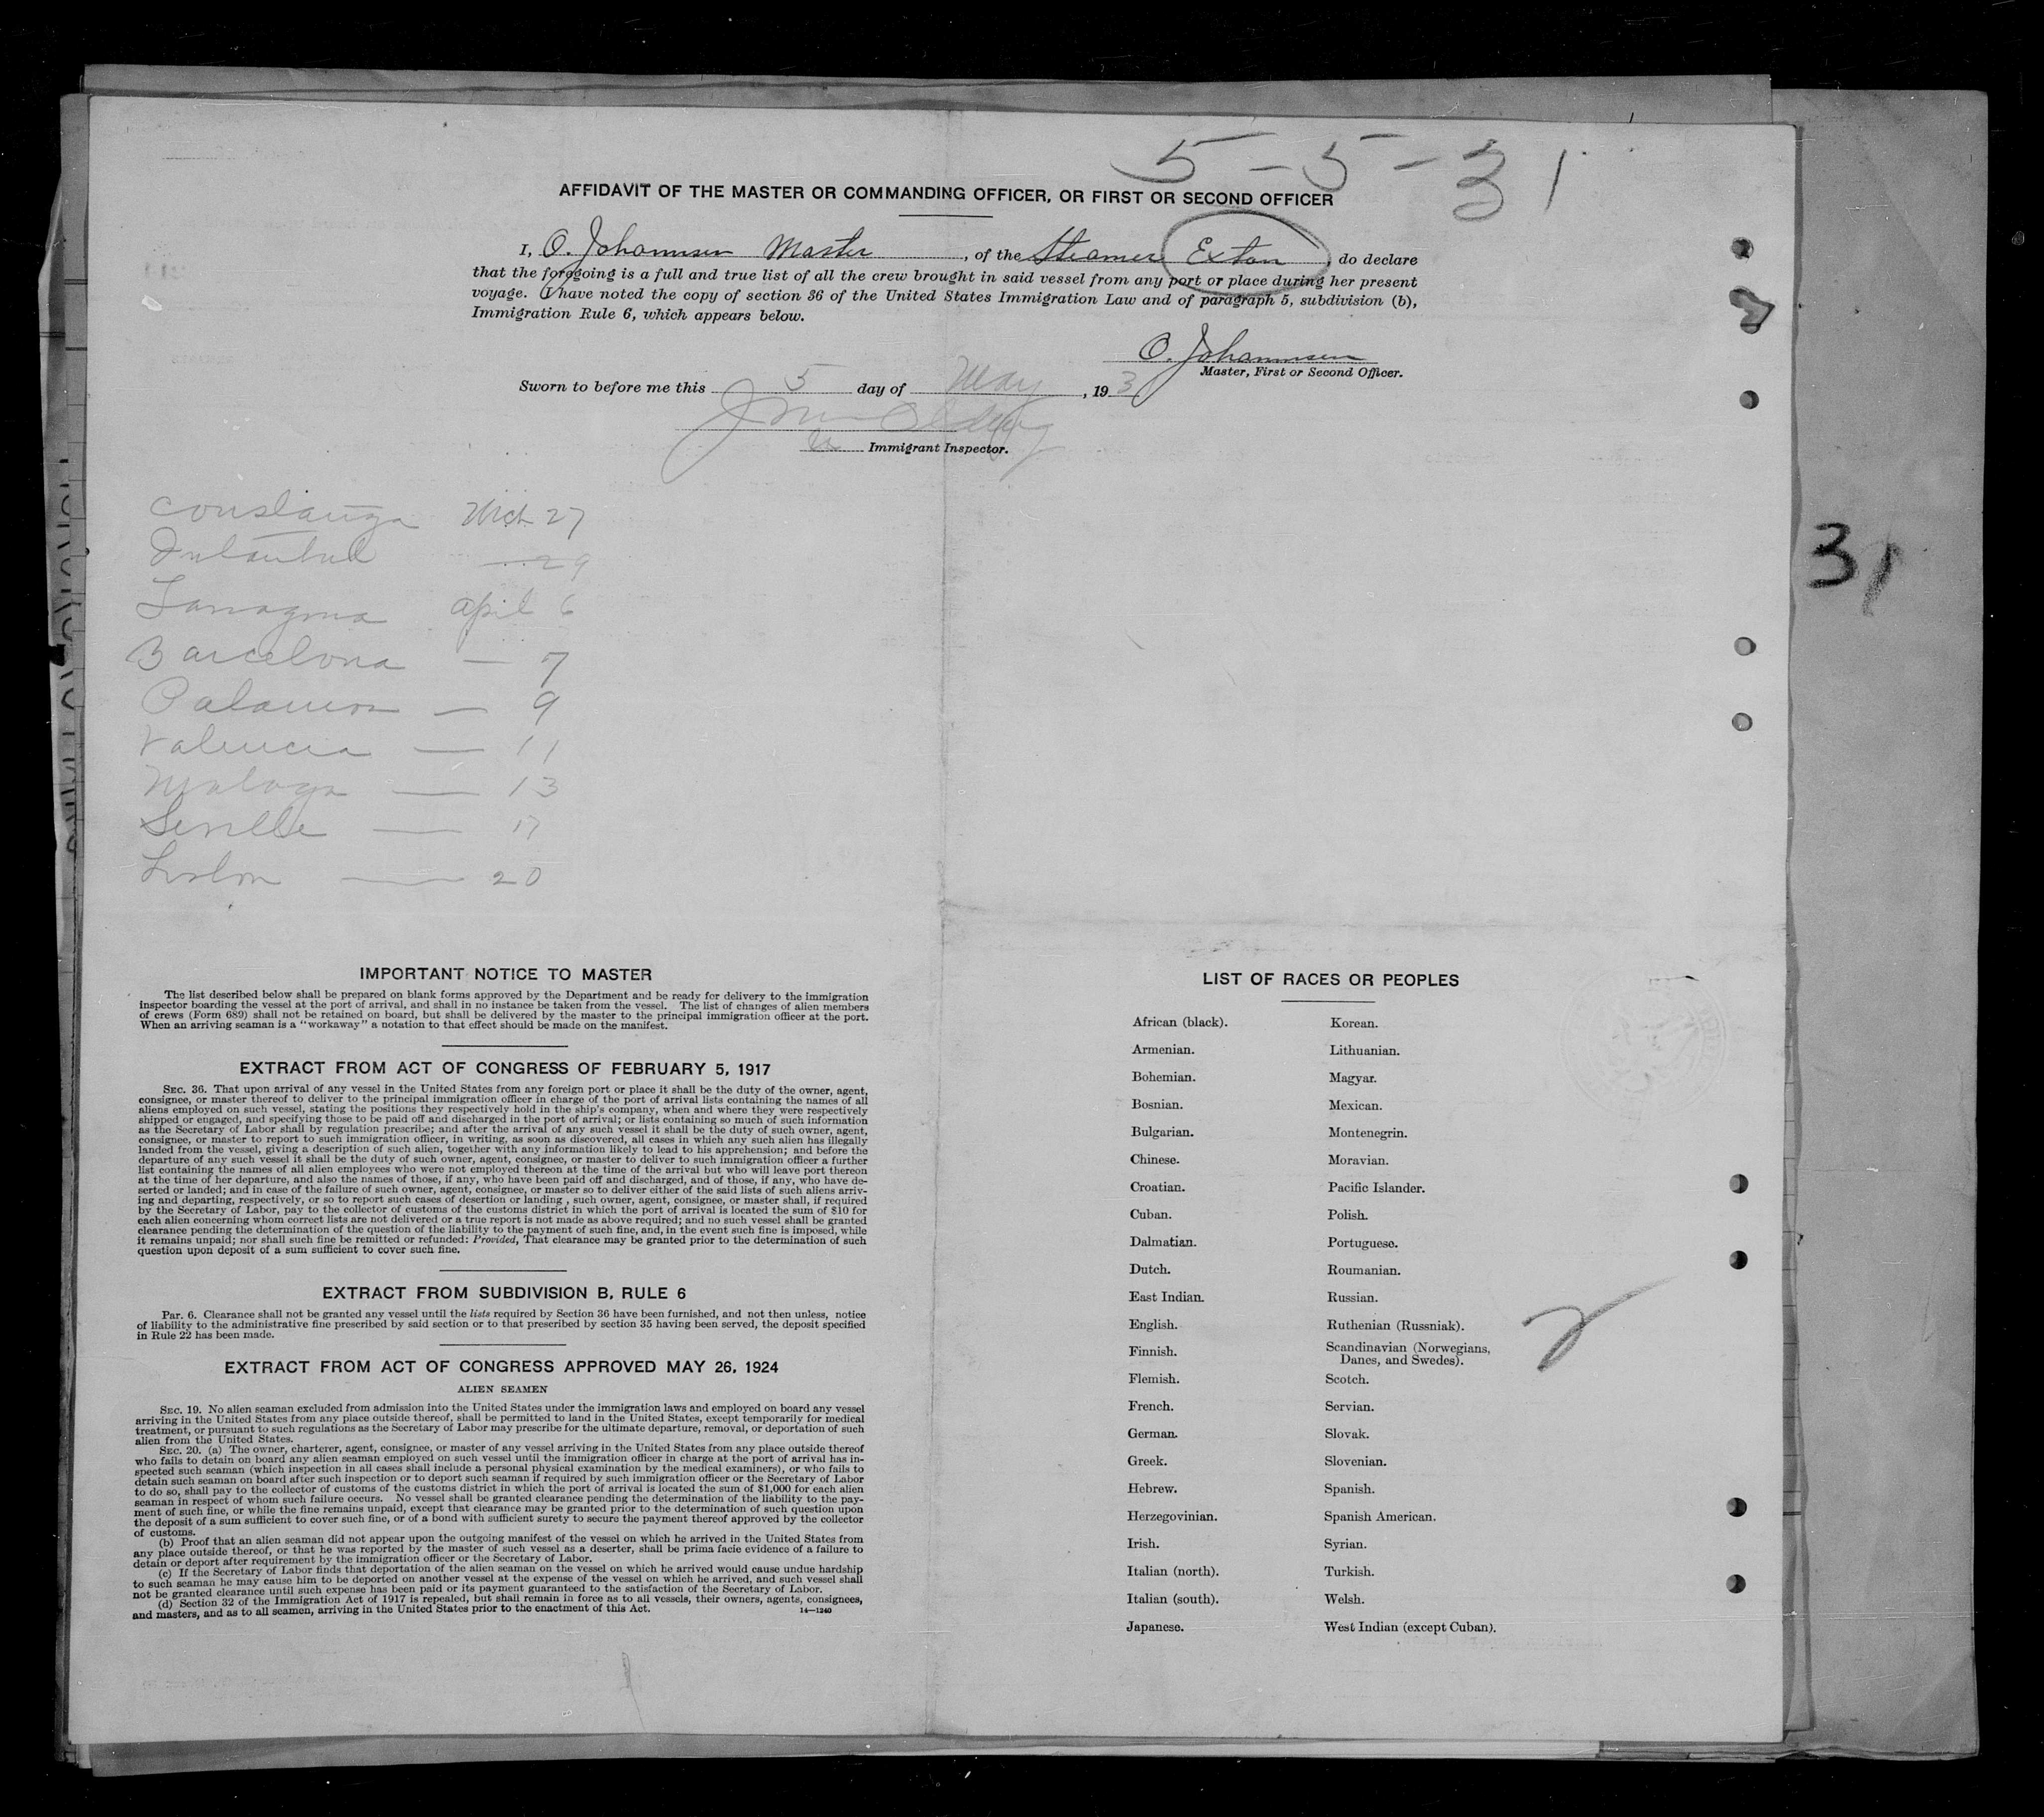 5-5-31
AFFIDAVIT OF THE MASTER OR COMMANDING OFFICER, OR FIRST OR SECOND OFFICER
I, O. Johannsen Master, of the Steamer Exton, do declare
that the foregoing is a full and true list of all the crew brought in said vessel from any port or place during her present
voyage. I have noted the copy of section 36 of the United States Immigration Law and of paragraph 5, subdivision (b),
Immigration Rule 6, which appears below.
O. Johannsen
Master, First or Second Officer.
Sworn to before me this 5 day of May, 193
Immigrant Inspector.
Constanza Mch 27
29
April 6
Barcelona — 7
Palamos — 9
Valencia — 11
Malaga — 13
Seville — 17
Lisbon — 20
31
IMPORTANT NOTICE TO MASTER
The list described below shall be prepared on blank forms approved by the Department and be ready for delivery to the immigration
inspector boarding the vessel at the port of arrival, and shall in no instance be taken from the vessel. The list of changes of alien members
of crews (Form 689) shall not be retained on board, but shall be delivered by the master to the principal immigration officer at the port.
When an arriving seaman is a "workaway" a notation to that effect should be made on the manifest.
EXTRACT FROM ACT OF CONGRESS OF FEBRUARY 5, 1917
SEC. 36. That upon arrival of any vessel in the United States from any foreign port or place it shall be the duty of the owner, agent,
consignee, or master thereof to deliver to the principal immigration officer in charge of the port of arrival lists containing the names of all
aliens employed on such vessel, stating the positions they respectively hold in the ship's company, when and where they were respectively
shipped or engaged, and specifying those to be paid off and discharged in the port of arrival; or lists containing so much of such information
as the Secretary of Labor shall by regulation prescribe; and after the arrival of any such vessel it shall be the duty of such owner, agent,
consignee, or master to report to such immigration officer, in writing, as soon as discovered, all cases in which any such alien has illegally
landed from the vessel, giving a description of such alien, together with any information likely to lead to his apprehension; and before the
departure of any such vessel it shall be the duty of such owner, agent, consignee, or master to deliver to such immigration officer a further
list containing the names of all alien employees who were not employed thereon at the time of the arrival but who will leave port thereon
at the time of her departure, and also the names of those, if any, who have been paid off and discharged, and of those, if any, who have de-
serted or landed; and in case of the failure of such owner, agent, consignee, or master so to deliver either of the said lists of such aliens arriv-
ing and departing, respectively, or so to report such cases of desertion or landing, such owner, agent, consignee, or master shall, if required
by the Secretary of Labor, pay to the collector of customs of the customs district in which the port of arrival is located the sum of $10 for
each alien concerning whom correct lists are not delivered or a true report is not made as above required; and no such vessel shall be granted
clearance pending the determination of the question of the liability to the payment of such fine, and, in the event such fine is imposed, while
it remains unpaid; nor shall such fine be remitted or refunded: Provided, That clearance may be granted prior to the determination of such
question upon deposit of a sum sufficient to cover such fine.
EXTRACT FROM SUBDIVISION B, RULE 6
Par. 6. Clearance shall not be granted any vessel until the lists required by Section 36 have been furnished, and not then unless, notice
of liability to the administrative fine prescribed by said section or to that prescribed by section 35 having been served, the deposit specified
in Rule 22 has been made.
EXTRACT FROM ACT OF CONGRESS APPROVED MAY 26, 1924
ALIEN SEAMEN
SEC. 19. No alien seaman excluded from admission into the United States under the immigration laws and employed on board any vessel
arriving in the United States from any place outside thereof, shall be permitted to land in the United States, except temporarily for medical
treatment, or pursuant to such regulations as the Secretary of Labor may prescribe for the ultimate departure, removal, or deportation of such
alien from the United States.
SEC. 20. (a) The owner, charterer, agent, consignee, or master of any vessel arriving in the United States from any place outside thereof
who fails to detain on board any alien seaman employed on such vessel until the immigration officer in charge at the port of arrival has in-
spected such seaman (which inspection in all cases shall include a personal physical examination by the medical examiners), or who fails to
detain such seaman on board after such inspection or to deport such seaman if required by such immigration officer or the Secretary of Labor
to do so, shall pay to the collector of customs of the customs district in which the port of arrival is located the sum of $1,000 for each alien
seaman in respect of whom such failure occurs. No vessel shall be granted clearance pending the determination of the liability to the pay-
ment of such fine, or while the fine remains unpaid, except that clearance may be granted prior to the determination of such question upon
the deposit of a sum sufficient to cover such fine, or of a bond with sufficient surety to secure the payment thereof approved by the collector
of customs.
(b) Proof that an alien seaman did not appear upon the outgoing manifest of the vessel on which he arrived in the United States from
any place outside thereof, or that he was reported by the master of such vessel as a deserter, shall be prima facie evidence of a failure to
detain or deport after requirement by the immigration officer or the Secretary of Labor.
(c) If the Secretary of Labor finds that deportation of the alien seaman on the vessel on which he arrived would cause undue hardship
to such seaman he may cause him to be deported on another vessel at the expense of the vessel on which he arrived, and such vessel shall
not be granted clearance until such expense has been paid or its payment guaranteed to the satisfaction of the Secretary of Labor.
(d) Section 32 of the Immigration Act of 1917 is repealed, but shall remain in force as to all vessels, their owners, agents, consignees,
and masters, and as to all seamen, arriving in the United States prior to the enactment of this Act.
14—1240
LIST OF RACES OR PEOPLES
African (black). Korean.
Armenian. Lithuanian.
Bohemian. Magyar.
Bosnian. Mexican.
Bulgarian. Montenegrin.
Chinese. Moravian.
Croatian. Pacific Islander.
Cuban. Polish.
Dalmatian. Portuguese.
Dutch. Roumanian.
East Indian. Russian.
English. Ruthenian (Russniak).
Finnish. Scandinavian (Norwegians,
Danes, and Swedes).
Flemish. Scotch.
French. Servian.
German. Slovak.
Greek. Slovenian.
Hebrew. Spanish.
Herzegovinian. Spanish American.
Irish. Syrian.
Italian (north). Turkish.
Italian (south). Welsh.
Japanese. West Indian (except Cuban).